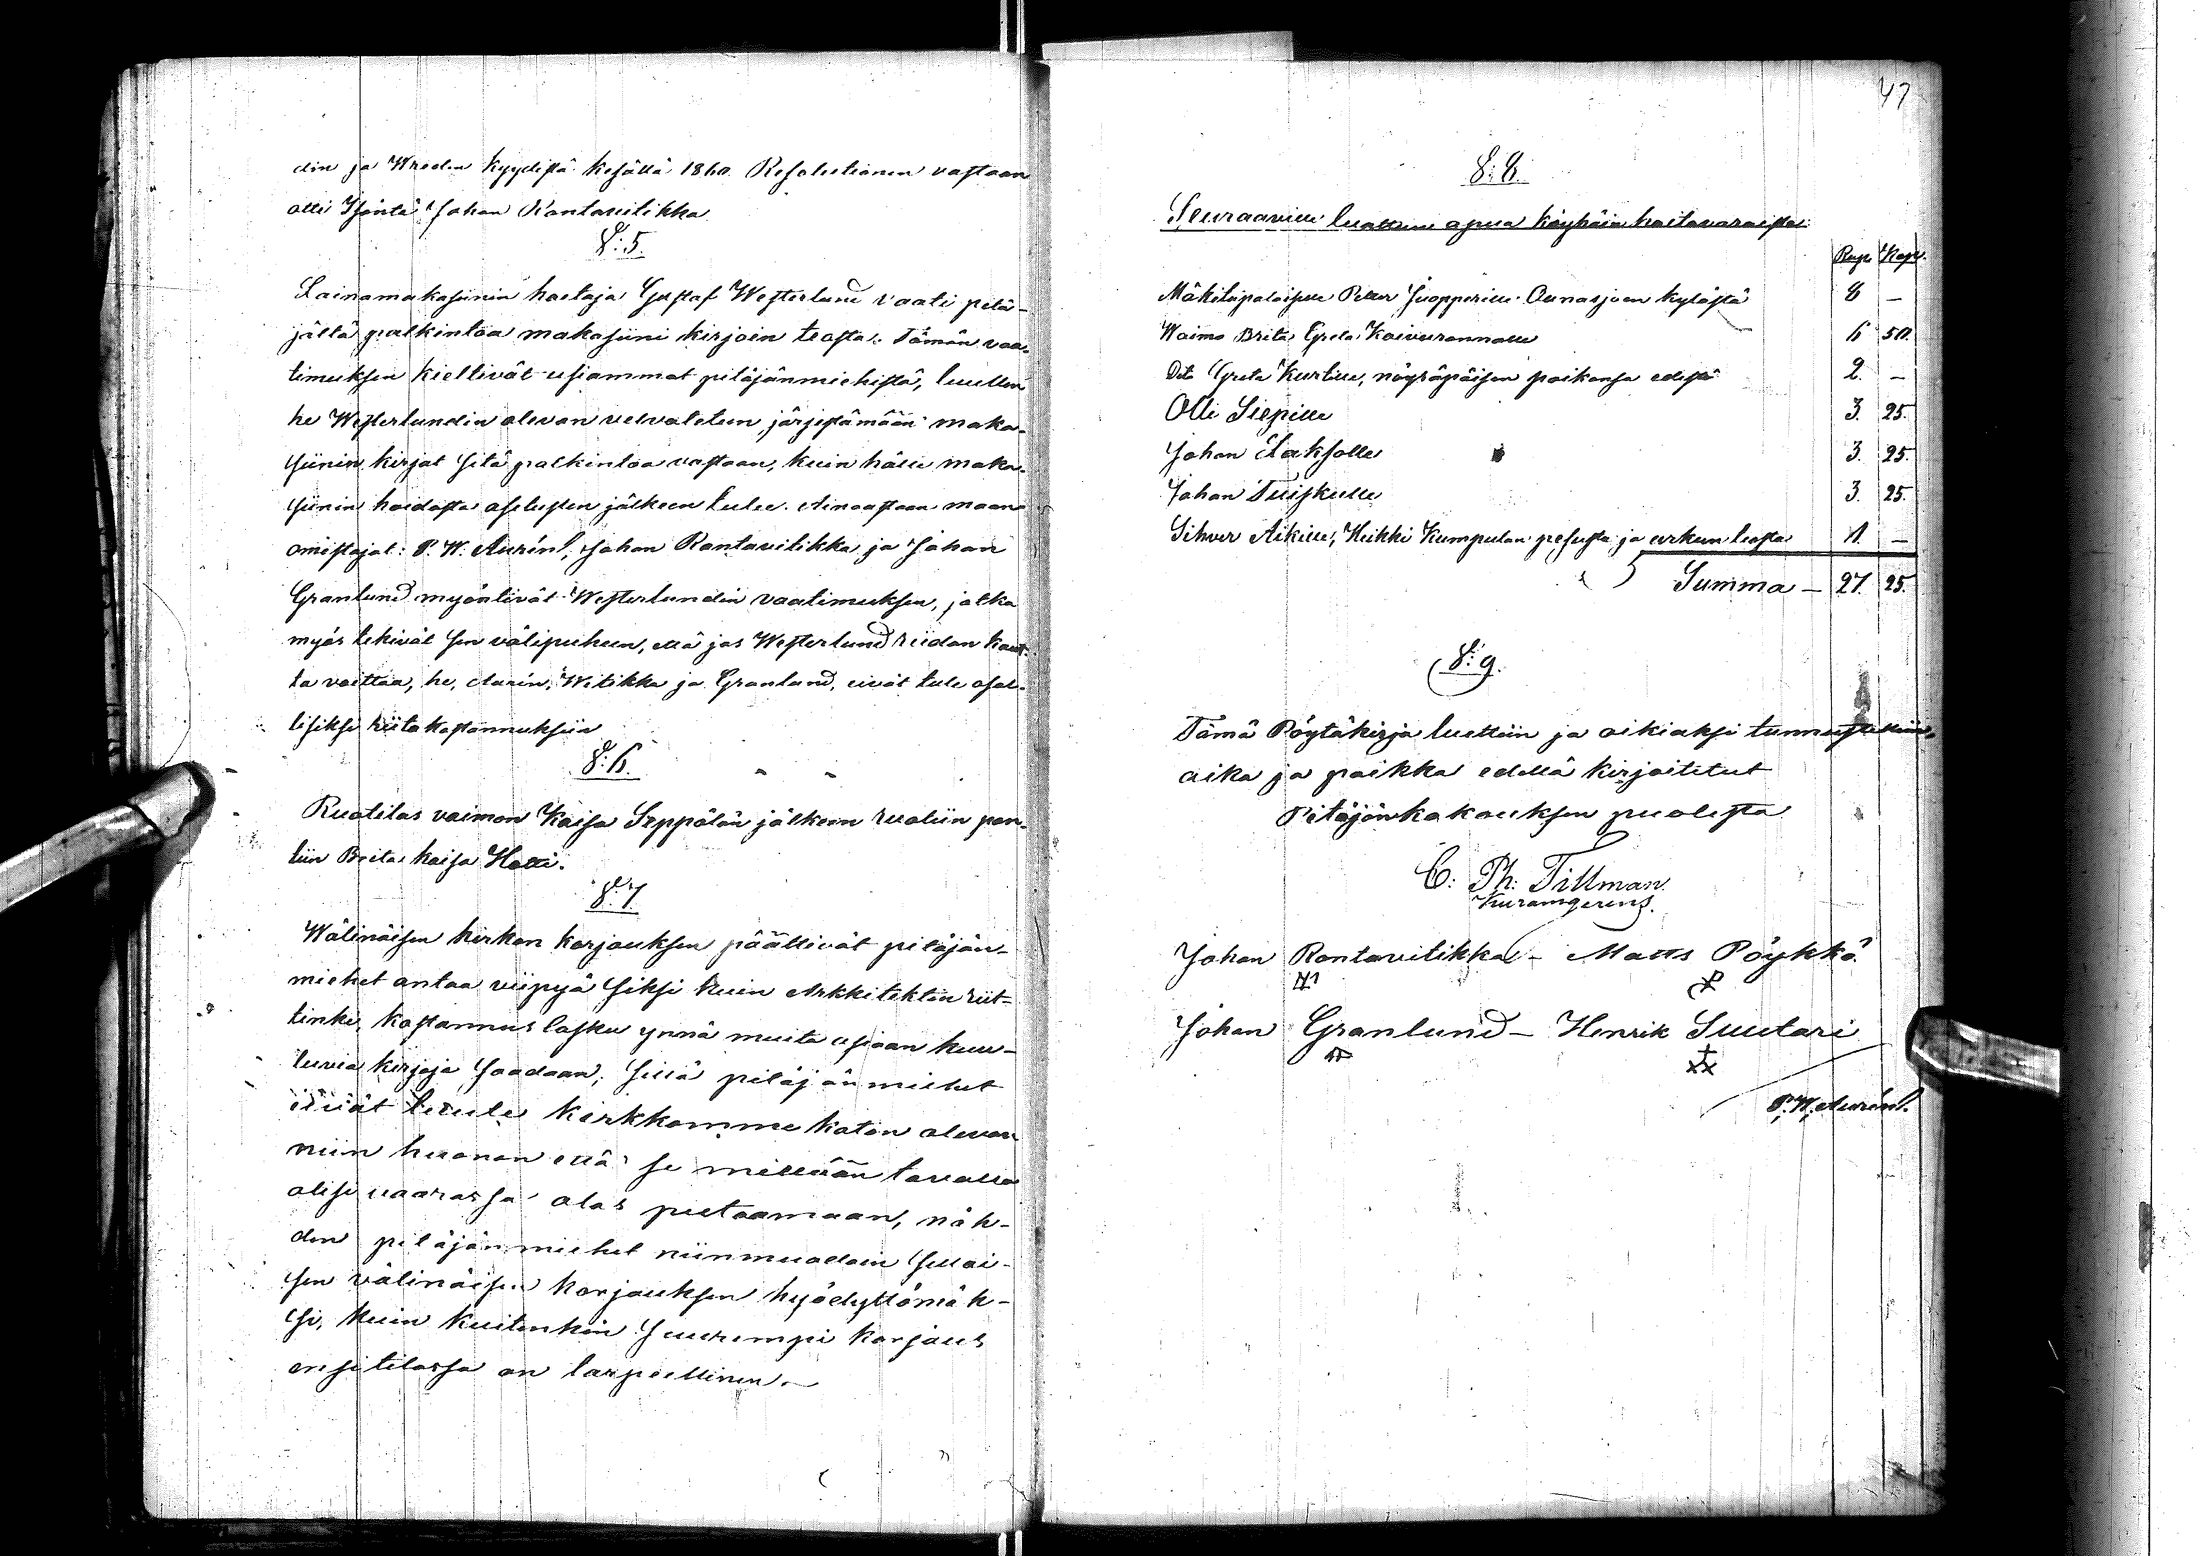 din ja Wreden kyydistä kesällä 1860. Resolutionen vastaan
otti Isäntä Johan Rantavitikka
§: 5.
Lainamakasiinin hoitaja Gustaf Westerlund vaati pitä-
jältä palkintoa makasiini kirjoin teosta. Tämän vaa-
timuksen kieltivät usiammat pitäjänmiehistä, luullen
he Westerlundin olevan velvoletun järjestämään maka-
siinin kirjat sitä palkintoa vastaan, kuin hälle maka-
siinin hoidosta asetusten jälkeen tulee. Ainoastaan maan-
omistajat: P. W. Aurén, Johan Rantavitikka ja Johan
Granlund myöntivät Westerlundin vaatimuksen, jotka
myös tekivät sen välipuheen, että jos Westerlund riidan kaut-
ta voittaa, he, Aurén, Witikka ja Granlund, eivät tule osal-
lisiksi riitakostannuksiin
§: 6.
Ruotilas vaimon Kaisa Seppälän jälkeen ruotiin pan-
tiin Brita Kaisa Hotti.
§: 7.
Wälinäisen kirkon korjauksen päättivät pitäjän-
miehet antaa viipyä siksi kuin Arkkitektin riit-
tinki, kostannus lasku ynnä muita asiaan kuu-
luvia kirjoja saadaan; sillä pitäjänmiehet
eivät kirkkomme katon olevan
niin huonon että se millään tavalla
olisi vaarassa alas putoamaan, näh-
den pitäjänmiehet niinmuodoin sellai-
sen välinäisen korjauksen hyödyttömäk-
si, kuin kuitenkin suurempi korjaus
ensitilassa on tarpeellinen.—
47
§: 8.
Seuraaville luettiin apua köyhäin hoitovaroista:
Rup. Kop.
Mäkitupalaiselle Petter Juopperille Ounasjoen kylästä 8 —
Waimo Brita Greta Koivurannalle 6 50.
Dito Greta Kurtille, nöyräpäisen poikansa edestä 2. —
Olli Siepille 3. 25.
Johan Laksolle 3. 25.
Johan Tuiskulle 3. 25.
Sihver Aikille, Heikki Kumpulan pesusta ja arkun teosta 1. —
Summa — 27. 25.
§: 9.
Tämä Pöytäkirja luettiin ja oikiaksi tunnustettiin,
aika ja paikka edellä kirjoitetut
Pitäjänkokouksen puolesta
C. Ph: Tillman.
Kuramgerens.
Johan Rantavitikka — Matts Pöykkö
Johan Granlund — Henrik Suutari
P. W. Aurén.